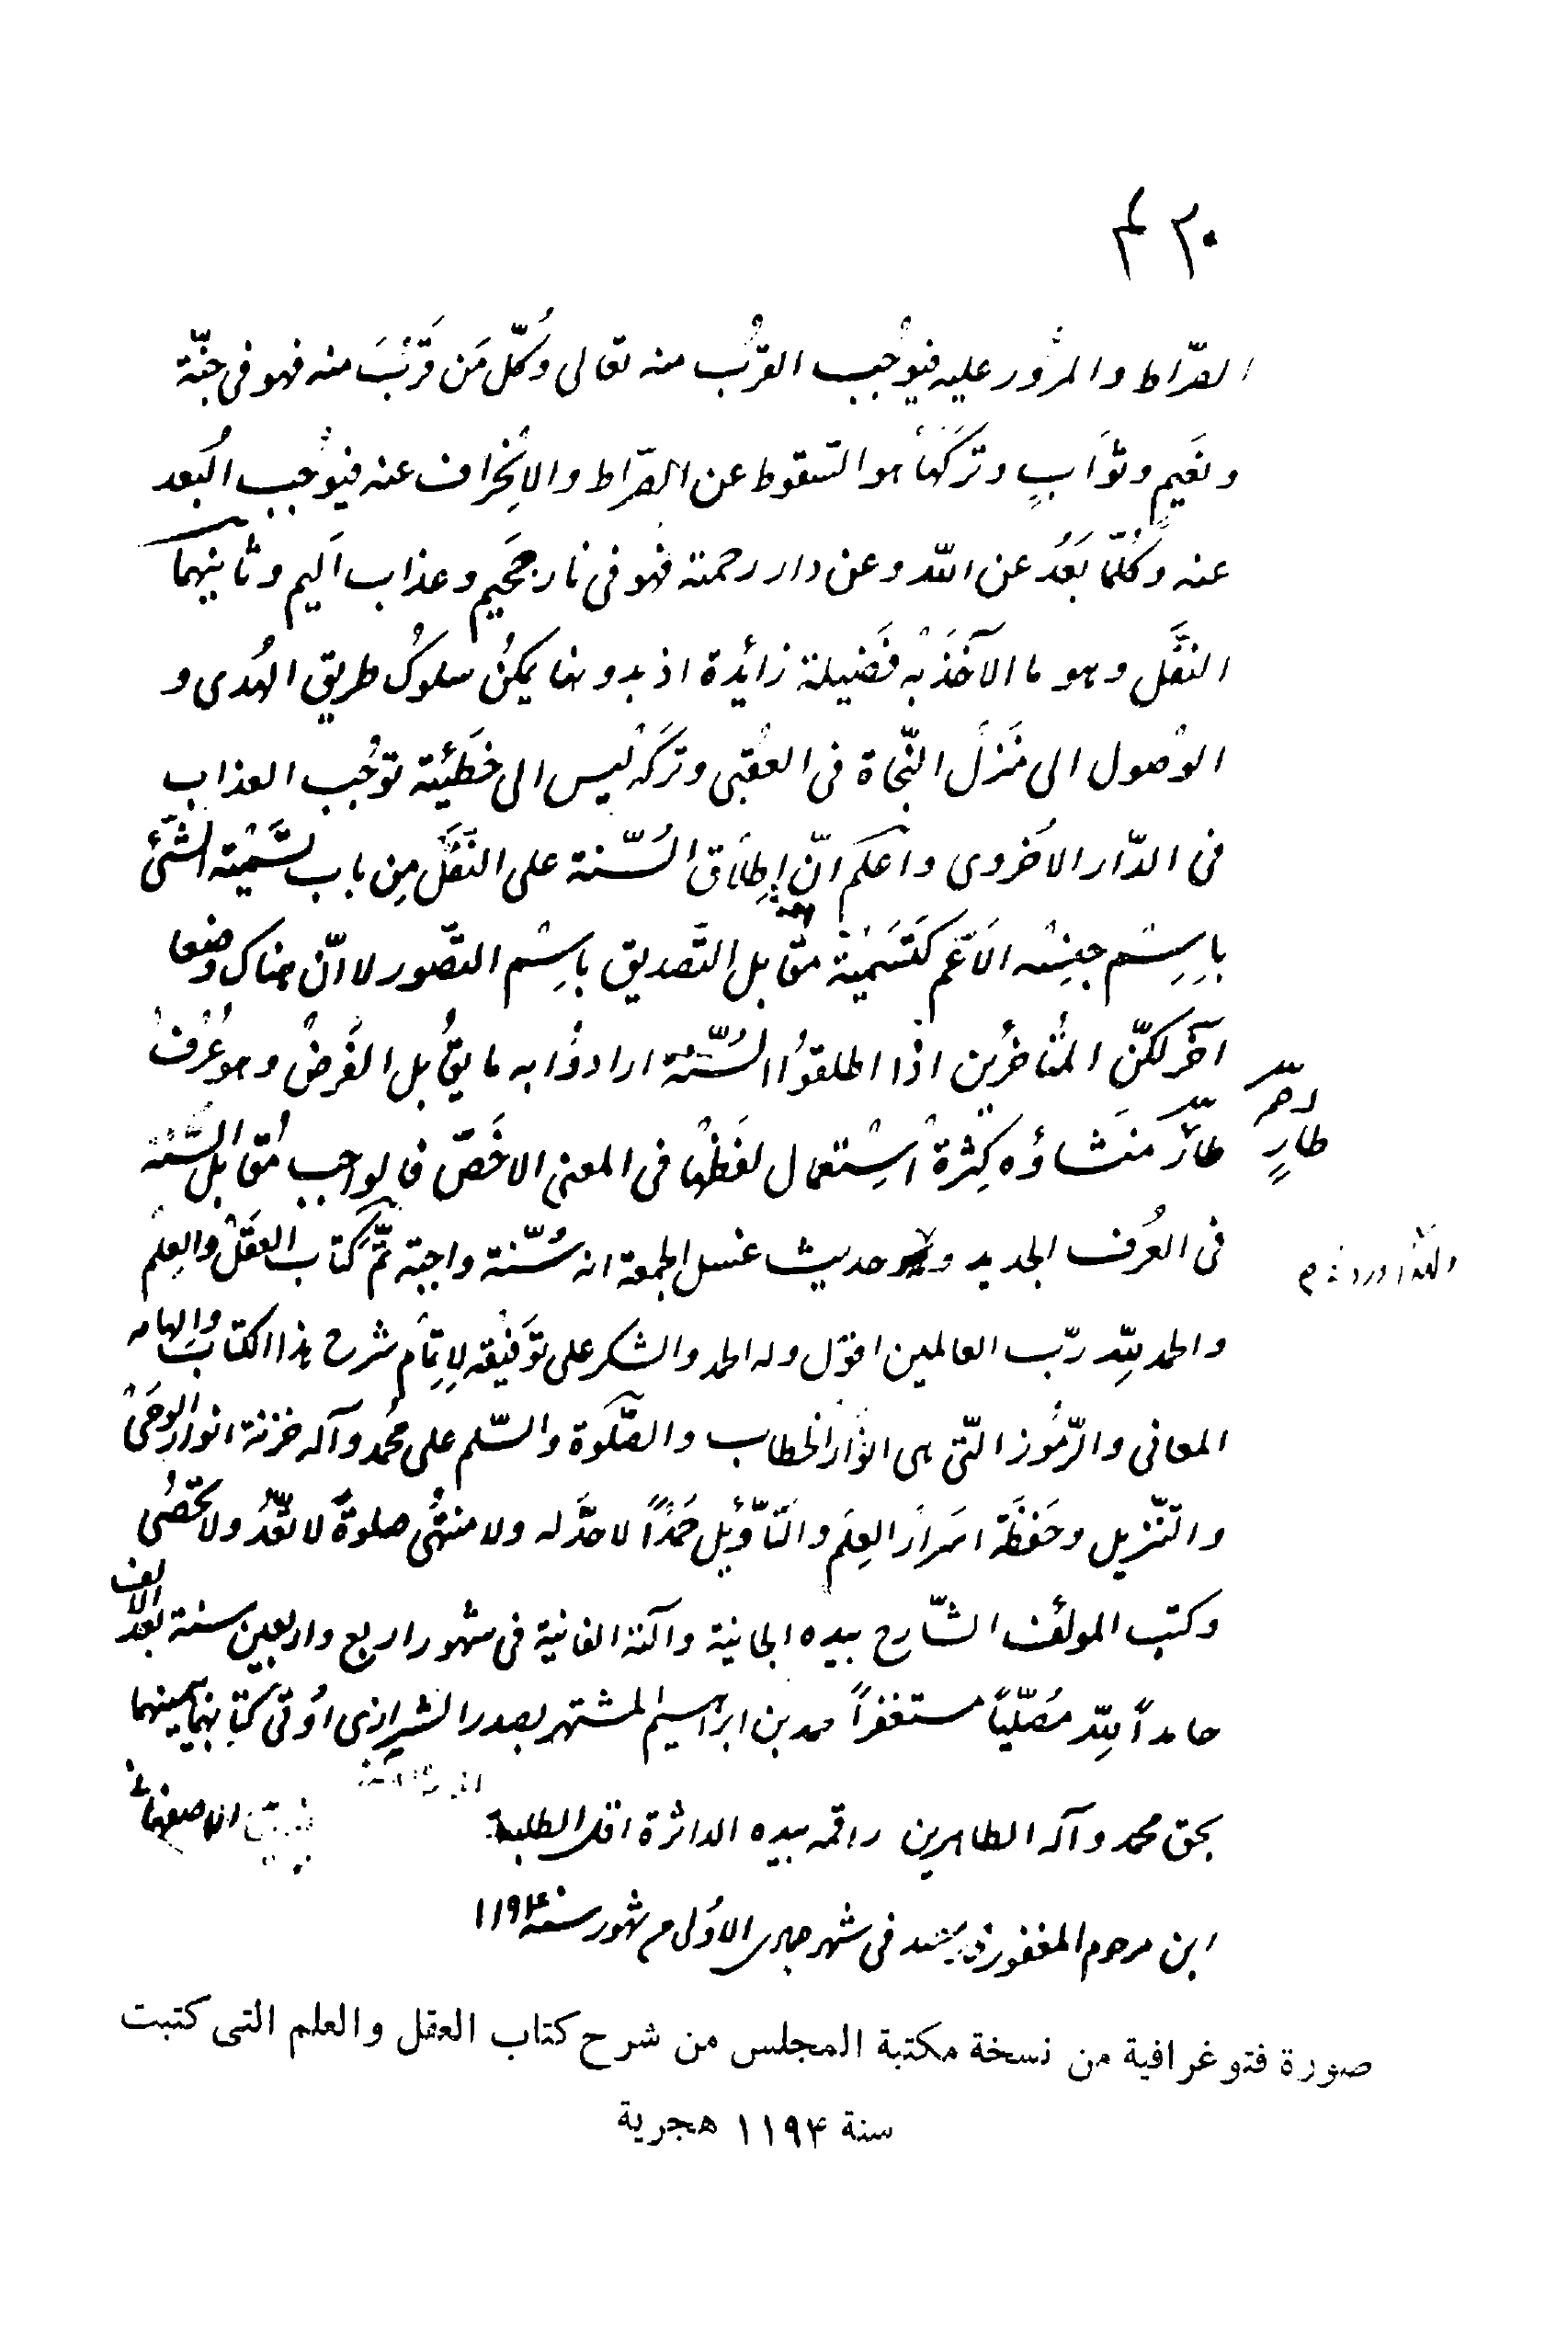 الصّراط والمرُور عليه فيُوجب القرُب منه تعالى وكُلّ مَن قَرُبَ منه فهو فى جنّة
ونَعيم وثوَابٍ وتركها هو السّقوط عن الصّراط والانِحراف عنه فيُوجب البُعد
عنه وكُلّما بَعُدَ عن اللّه وعن دار رحمته فهو فى نار جحَيم وعذاب اَليم وثانيهما
النفَّل وهو ما الآخَذ به فَضيلة زائدة اذ بدونها يمكنُ سلوكُ طريق الهُدى و
الوُصول الى مَنزل النّجاة فى العُقبى وتركه ليس الى خطَيئة توُجب العذاب
فى الدّار الاُخروى واعلم انّ اِطلاَق السُّنة على النَّفَل مِن باب تسَّميَته الشّئ
باِسِم جِنِسه الاَعَّم كتَسَميَة مقابل التَّصديق باسِم التصّور لا انّ هناك وضعا
آخر لكنّ المتُأخرُين اذا اطلقوُا السُّنّة ارادوُا به ما يقُابل الفَرضْ وهو عُرفْ
طارٍ منَشاؤه كثِرةُ اسِتعمال لفَظها فى المعنى الاخَصّ فالواجب مُقابل السُّنة
فى العُرف الجديد و حديث غسل الجمعة انه سُنّة واجبة تمَّ كتاب العَقَلْ والعِلِمْ
والحمد للّه ربّ العالمين اقول وله الحمد والشكر على توَفيقه لاِتمَام شرح هذا الكتاب والهامه
المعانى والرّمُوز التّى هى انوَار الخطاب والصّلَوة والسّلم على محُمد وآله خزنة انوار الوَحى
والتنّزيل وحَفَظَة اسَرارَ العِلِم والتّأوُيل حَمدًا لا حدَّ له ولا منتهُى صلوةً لا تعُّدُ ولا تحُصُى
وكتب المولُف الشّارح بيده الجانية وآلته الفانية فى شهور اربع واربعين سنة بعد الالف
حامداً للّه مُصلّياً مستغفراً محمد بن ابراهيم المشتهر بصدر الشيرازى اوُتى كتابهما بيمينهما
بحق محمد وآله الطاهرين راقمه بيده الداثرة اقل الطلبة الاصفهانى
ابن مرحوم المغفور فى شهر جمادى الاوُلى من شهور سنة ۱۱۹۴
صورة فتوغرافية من نسخة مكتبة المجلس من شرح كتاب العقل والعلم التى كتبت
سنة ۱۱۹۴ هجرية